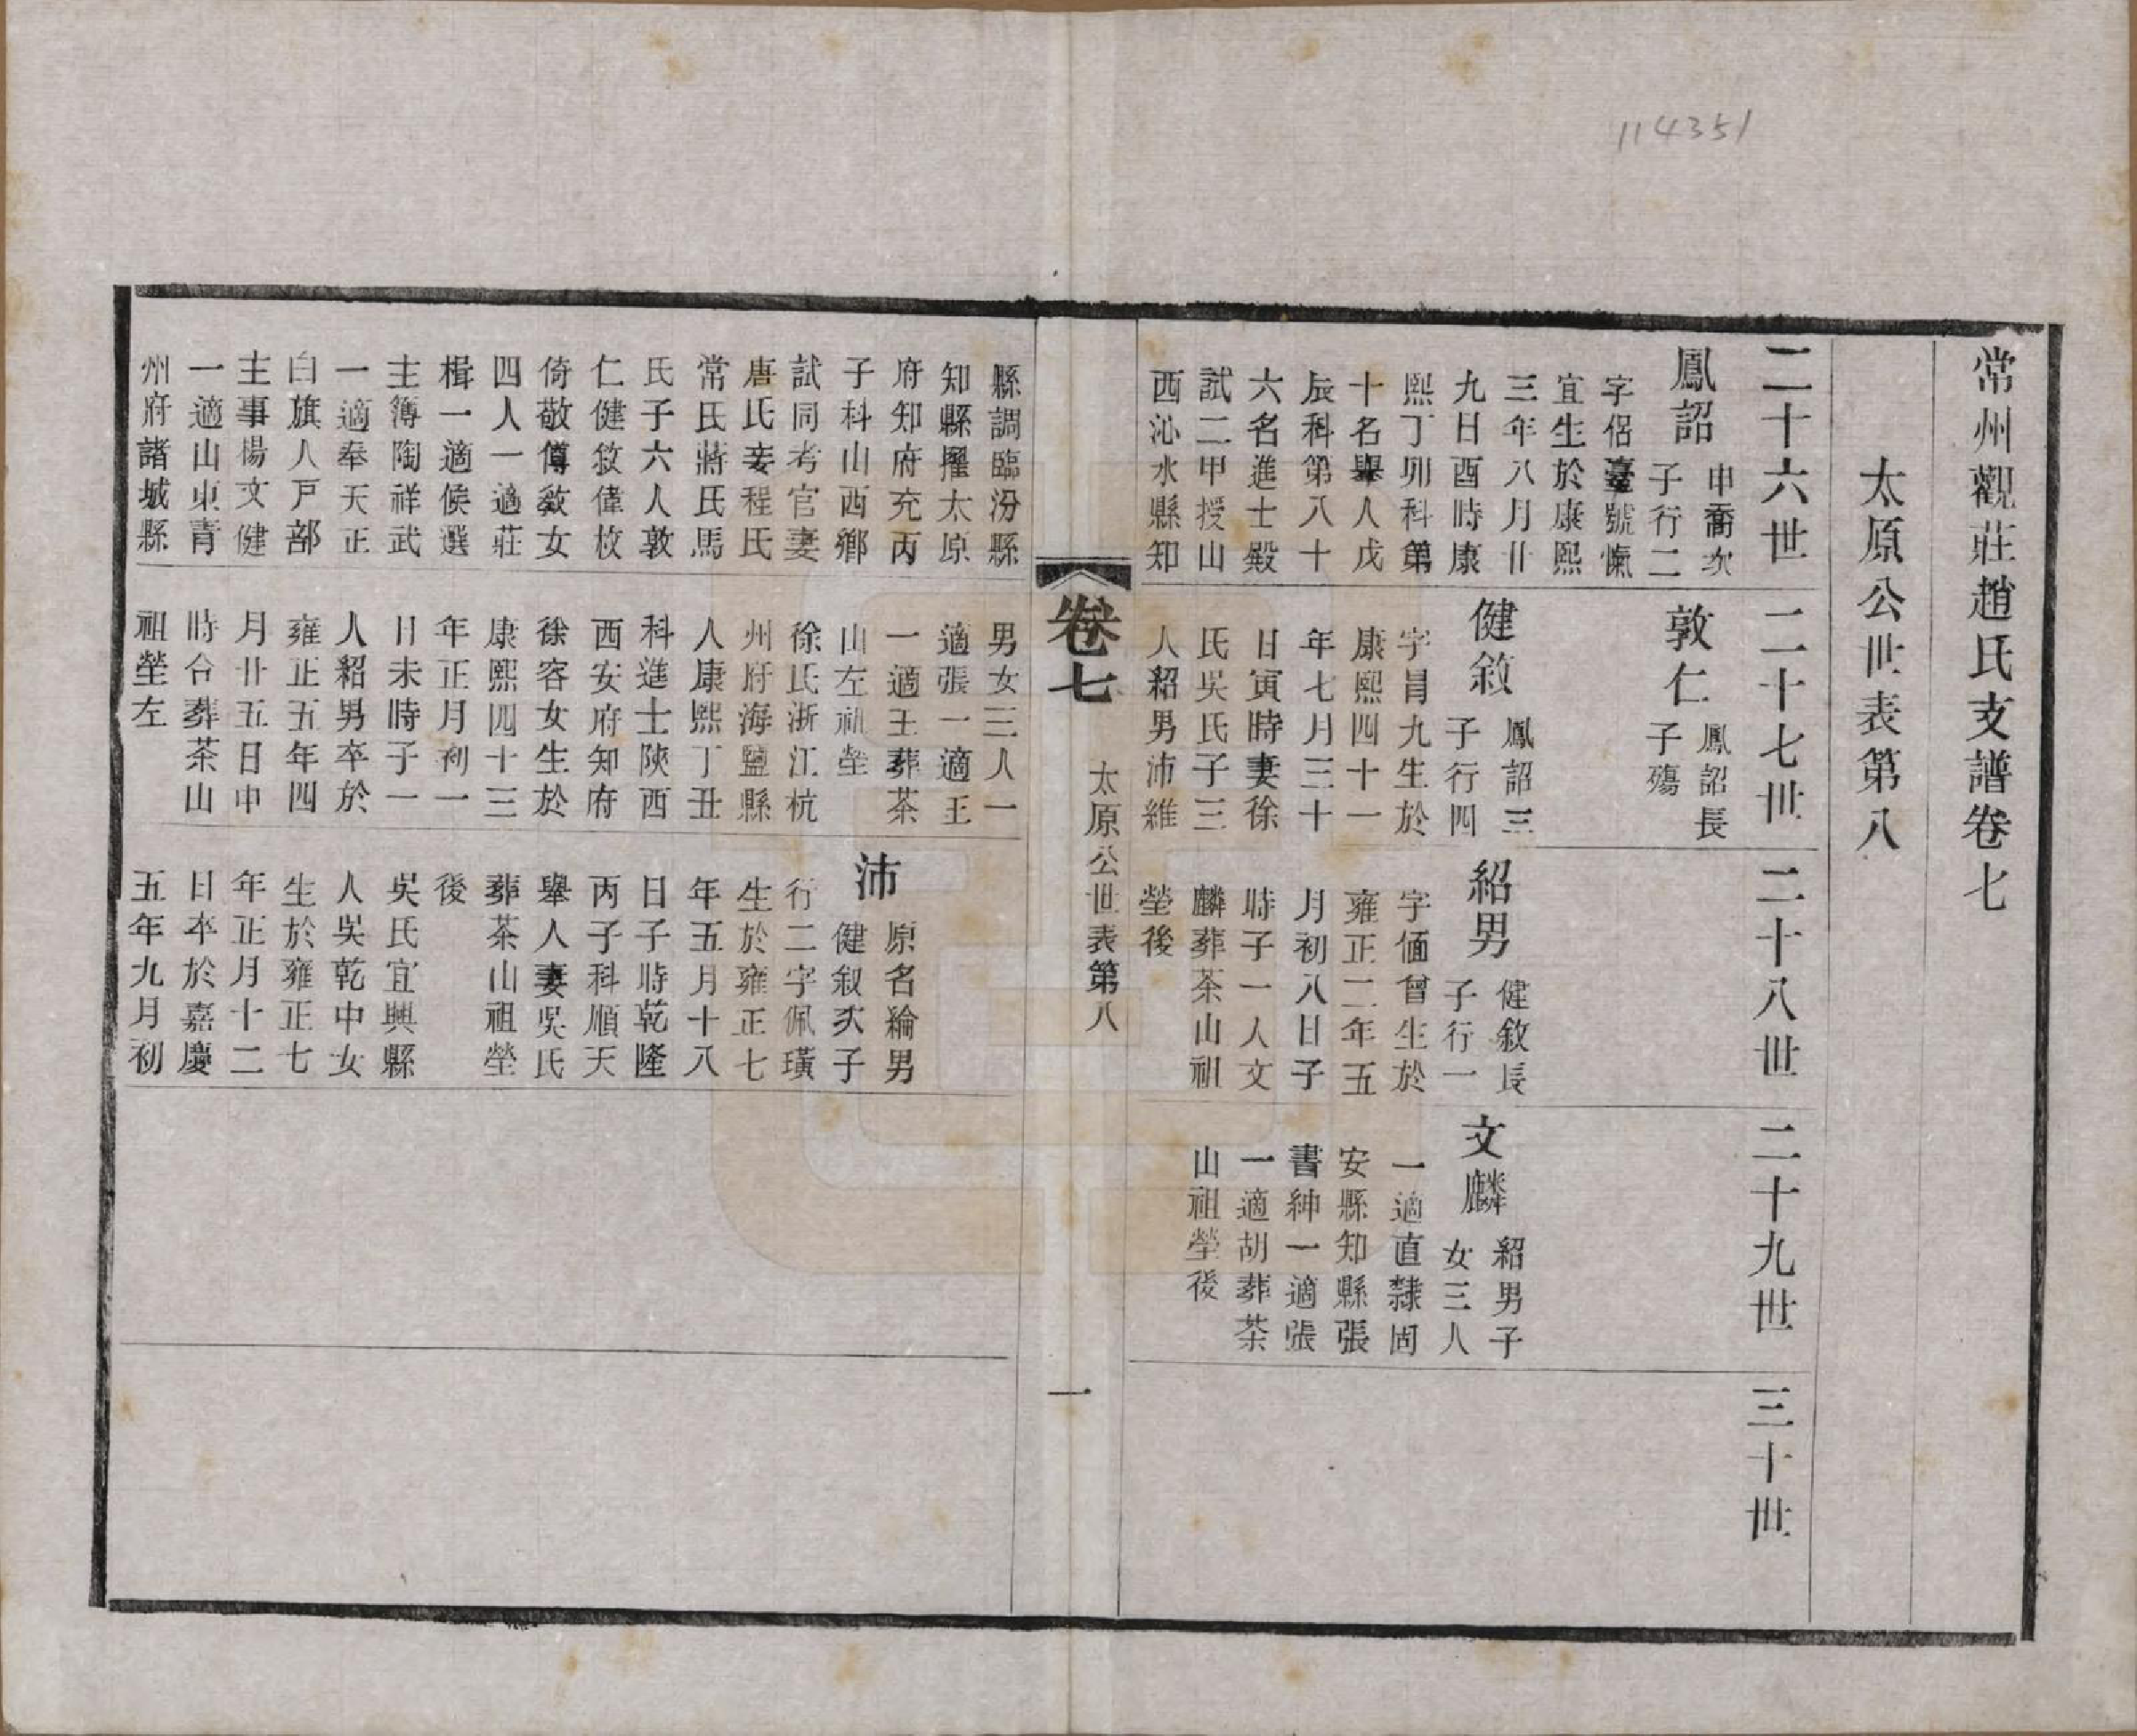 114351
常州觀莊趙氏支譜卷七
太原公世表第八
二十六世
二十七世
二十八世
二十九世
三十世
鳳詔
申喬次
子行二
字侶臺號慵
宜生於康熙
三年八月廿
九日酉時康
熙丁卯科第
十名舉人戊
辰科第八十
六名進士殿
試二甲授山
西沁水縣知
敦仁
鳳詔長
子殤
健敘
鳳詔三
子行四
字昌九生於
康熙四十一
年七月三十
日寅時妻徐
氏吳氏子三
人紹男沛維
紹男
健敘長
子行一
字価曾生於
雍正二年五
月初八日子
時子一人文
麟葬茶山祖
塋後
文麟
紹男子
女三人
一適直隸固
安縣知縣張
書紳一適張
一適胡葬茶
山祖塋後
卷七
太原公世表第八
一
縣調臨汾縣
知縣擢太原
府知府充丙
子科山西鄉
試同考官妻
唐氏妾程氏
常氏蔣氏馬
氏子六人敦
仁健敘偉枚
倚敬傅敘女
四人一適莊
楫一適候選
主簿陶祥武
一適奉天正
白旗人戸部
主事楊文健
一適山東青
州府諸城縣
男女三人一
適張一適王
一適王葬茶
山左祖塋
徐氏浙江杭
州府海鹽縣
人康熙丁丑
科進士陝西
西安府知府
徐容女生於
康熙四十三
年正月初一
日未時子一
人紹男卒於
雍正五年四
月廿五日申
時合葬茶山
祖塋左
沛
原名綸男
健敘次子
行二字佩璜
生於雍正七
年五月十八
日子時乾隆
丙子科順天
舉人妻吳氏
葬茶山祖塋
後
吳氏宜興縣
人吳乾中女
生於雍正七
年正月十二
日卒於嘉慶
五年九月初